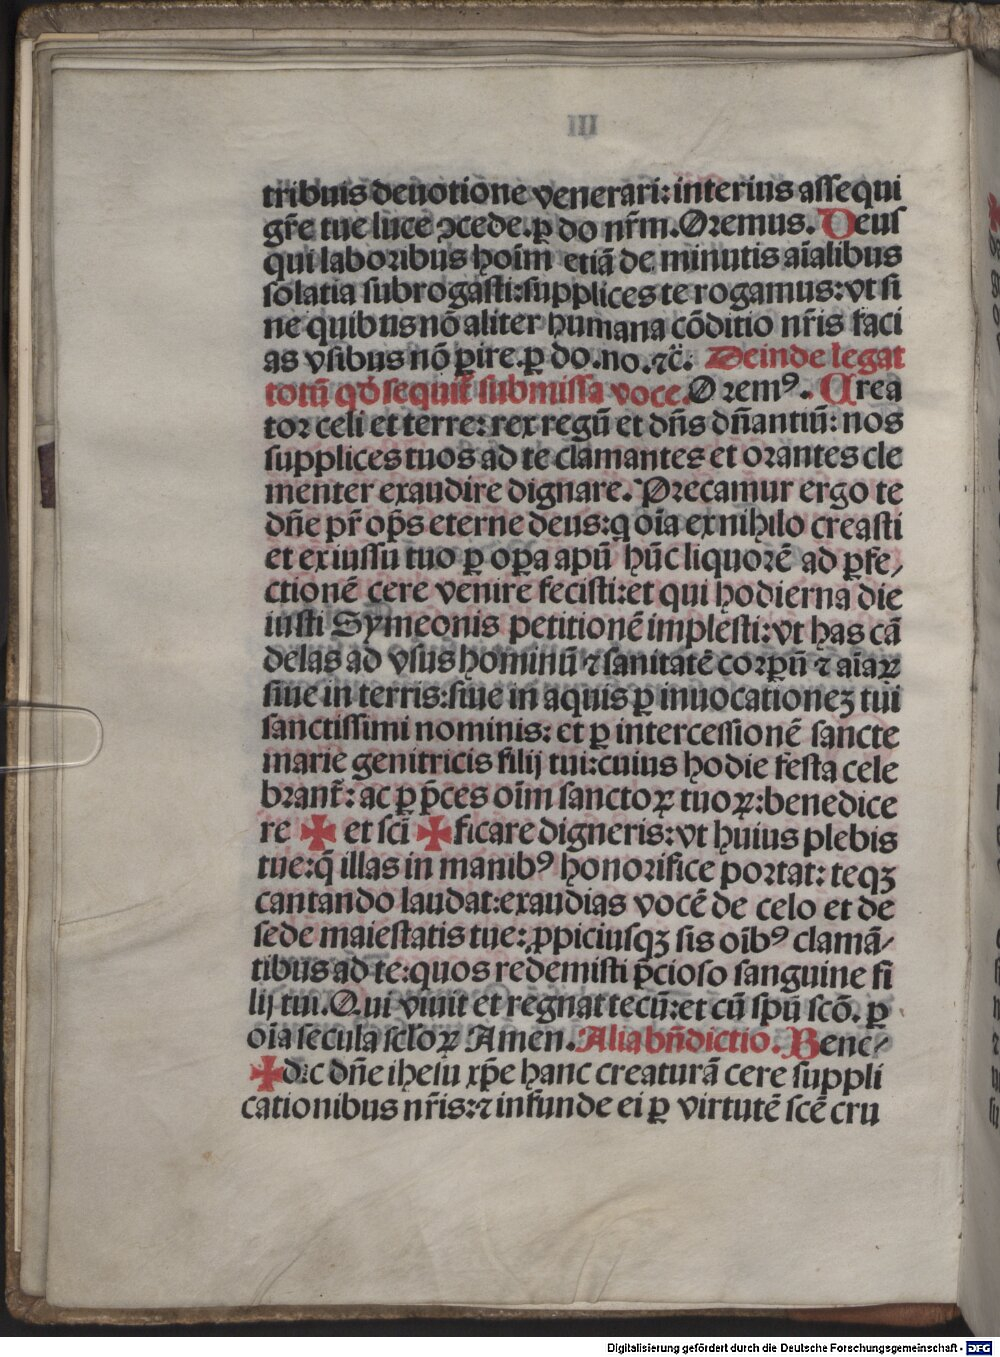 III
tribuis deuotione venerari: interius assequi
gr̄e tue luce ↄcede. ꝑ do nr̄m. Oremus. Deus
qui laboribus hoīm etiā de minutis aīalibus
solatia subrogasti: supplices te rogamus: vt si
ne quibus nō aliter humana cōditio nr̄is faci
as vsibus nō ꝑire. ꝑ do. no. ⁊c̄. Deinde legat
totū qḋ sequit̄ submissa voce. Oremꝰ. Crea
tor celi et terre: rex regū et dn̄s dn̄antiū: nos
supplices tuos ad te clamantes et orantes cle
menter exaudire dignare. Precamur ergo te
dn̄e pr̄ op̄s eterne deus: q oīa ex nihilo creasti
et ex iussu tuo ꝑ oꝑa apū hūc liquorē ad ꝑfe/
ctionē cere venire fecisti: et qui hodierna die
iusti Symeonis petitionē implesti: vt has cā
delas ad vsus hominū ⁊ sanitatē corꝑū ⁊ aīaꝝ
siue in terris: siue in aquis ꝑ inuocationeꝫ tui
sanctissimi nominis: et ꝑ intercessionē sancte
marie genitricis filij tui: cuius hodie festa cele
brant̄: ac ꝑ p̄ces oīm sanctoꝝ tuoꝝ: benedice
re ✠ et sci ✠ ficare digneris: vt huius plebis
tue: q̄ illas in manibꝰ honorifice portat: teqꝫ
cantando laudat: exaudias vocē de celo et de
sede maiestatis tue: ꝓpiciusqꝫ sis oībꝰ clamā/
tibus ad te: quos redemisti p̄cioso sanguine fi
lij tui. Qui viuit et regnat tecū: et cū spū scō. ꝑ
oīa secula scl̄oꝝ Amen. Alia bn̄dictio. Bene/
✠ dic dn̄e ihesu xp̄e hanc creaturā cere suppli
cationibus nr̄is: ⁊ infunde ei ꝑ virtutē scē cru
Digitalisierung gefördert durch die Deutsche Forschungsgemeinschaft - DFG